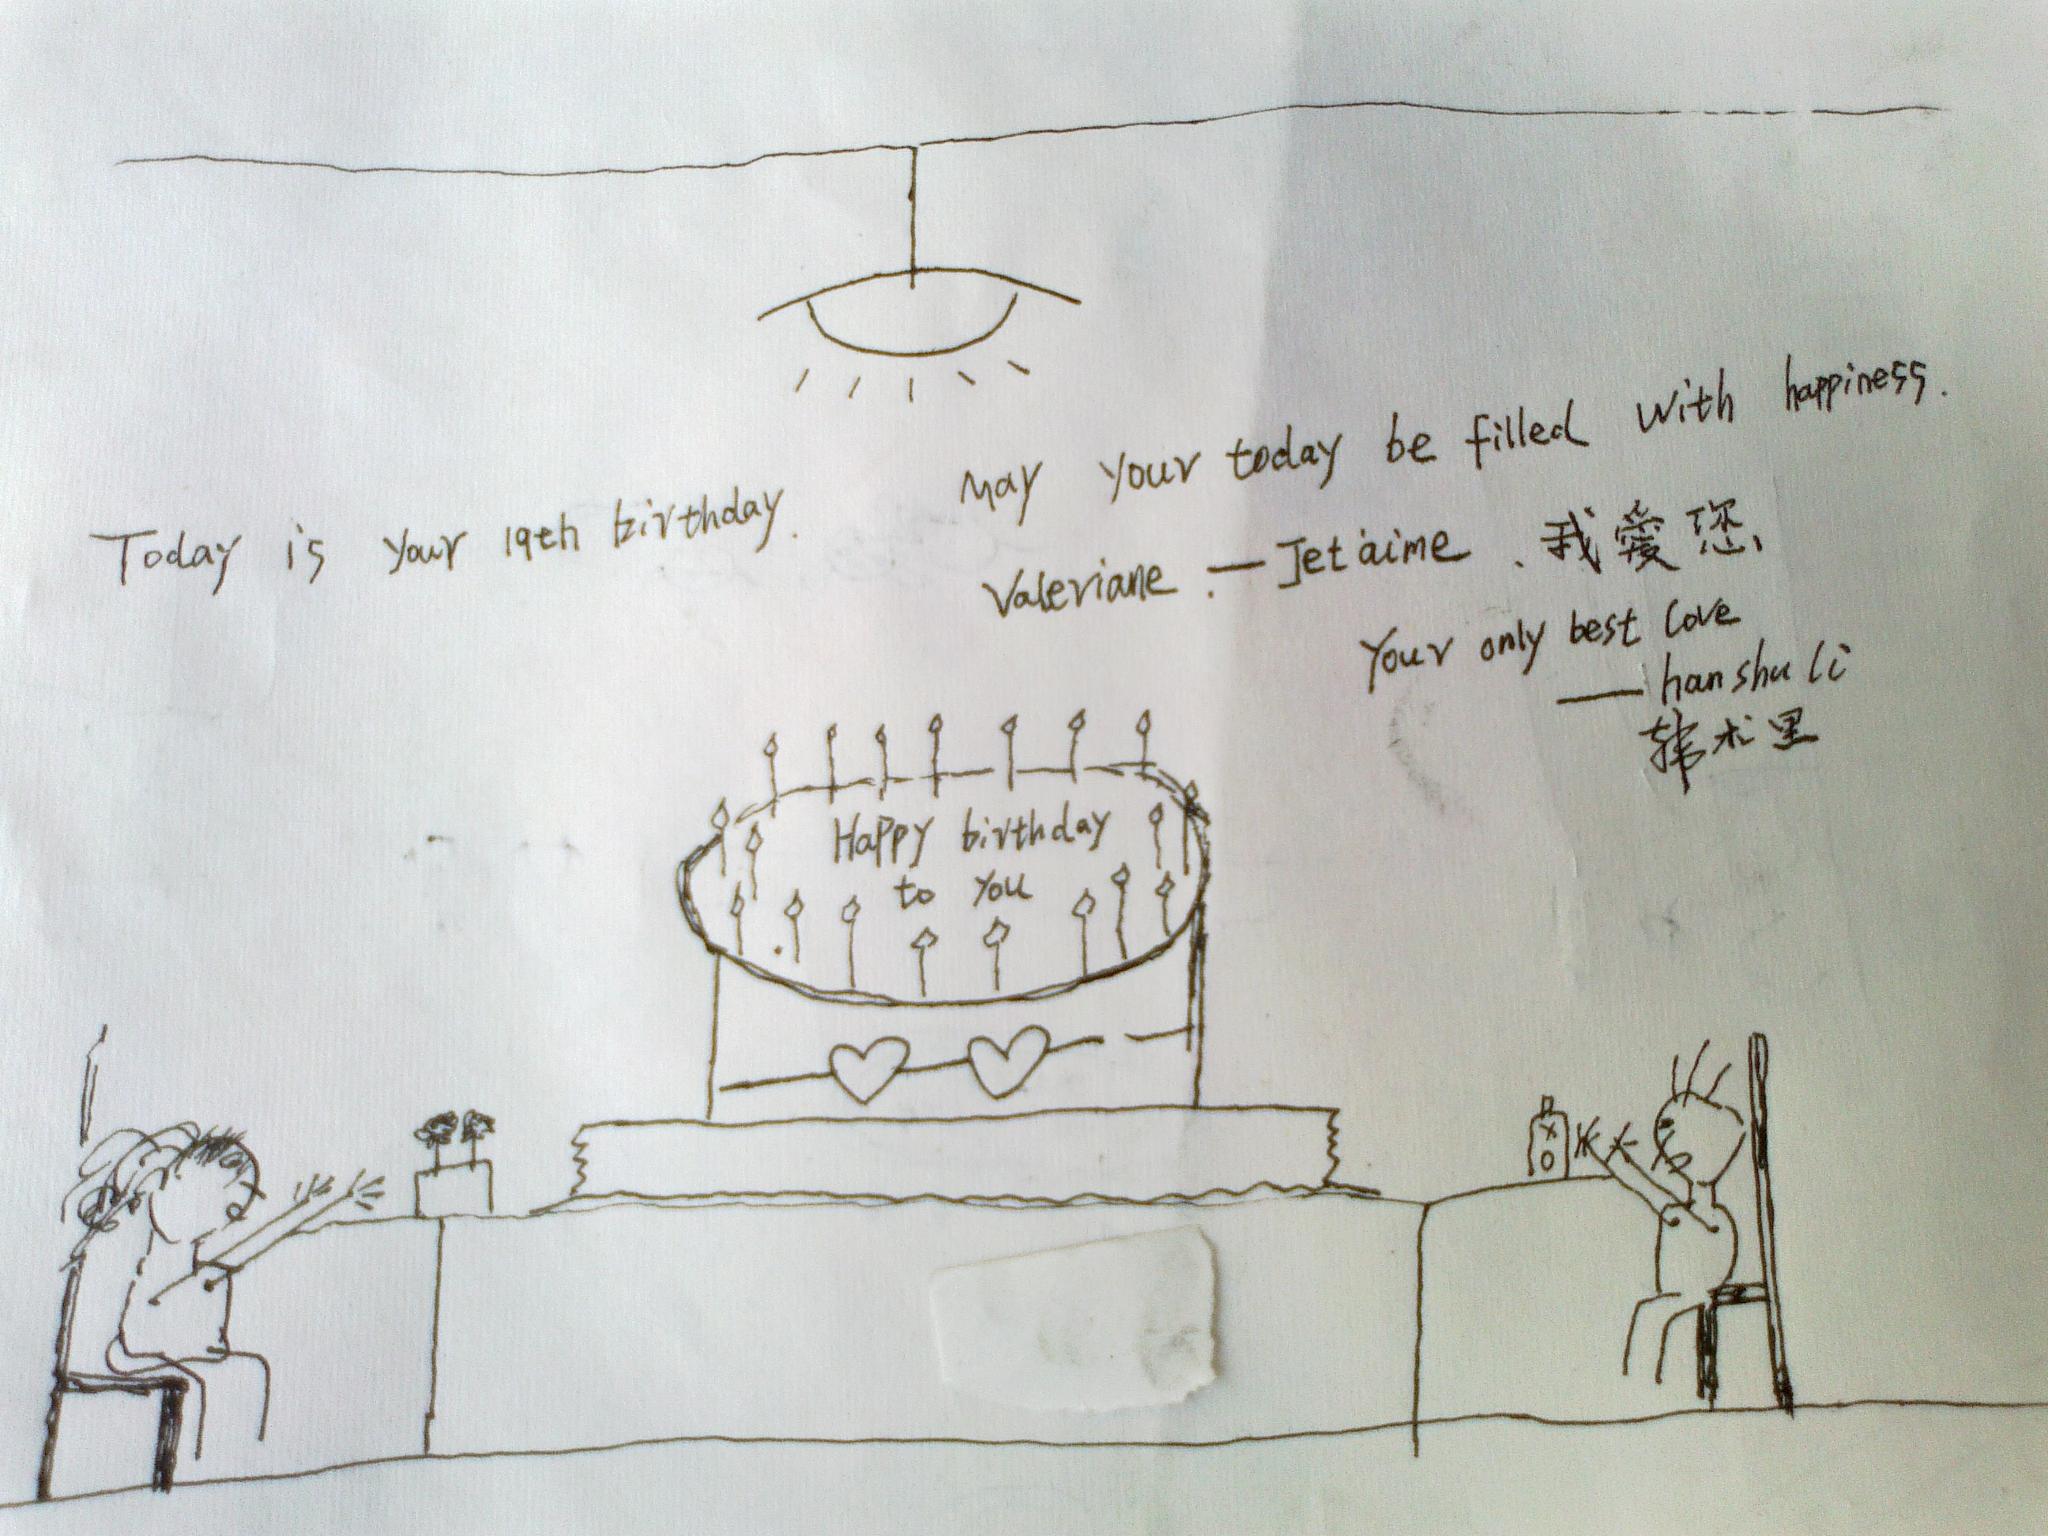 Today is your 19th birthday.
May your today be filled with happiness.
Valeriane. — Je t'aime. 我愛您
Your only best love
— hanshuli
韩术里
Happy birthday
to you
X
O